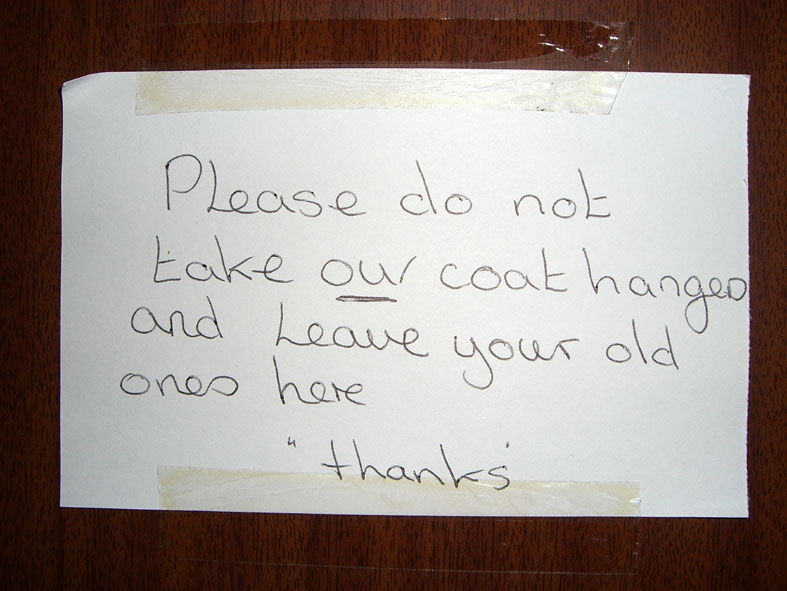 Please do not
take our coat hangers
and leave your old
ones here
"thanks"